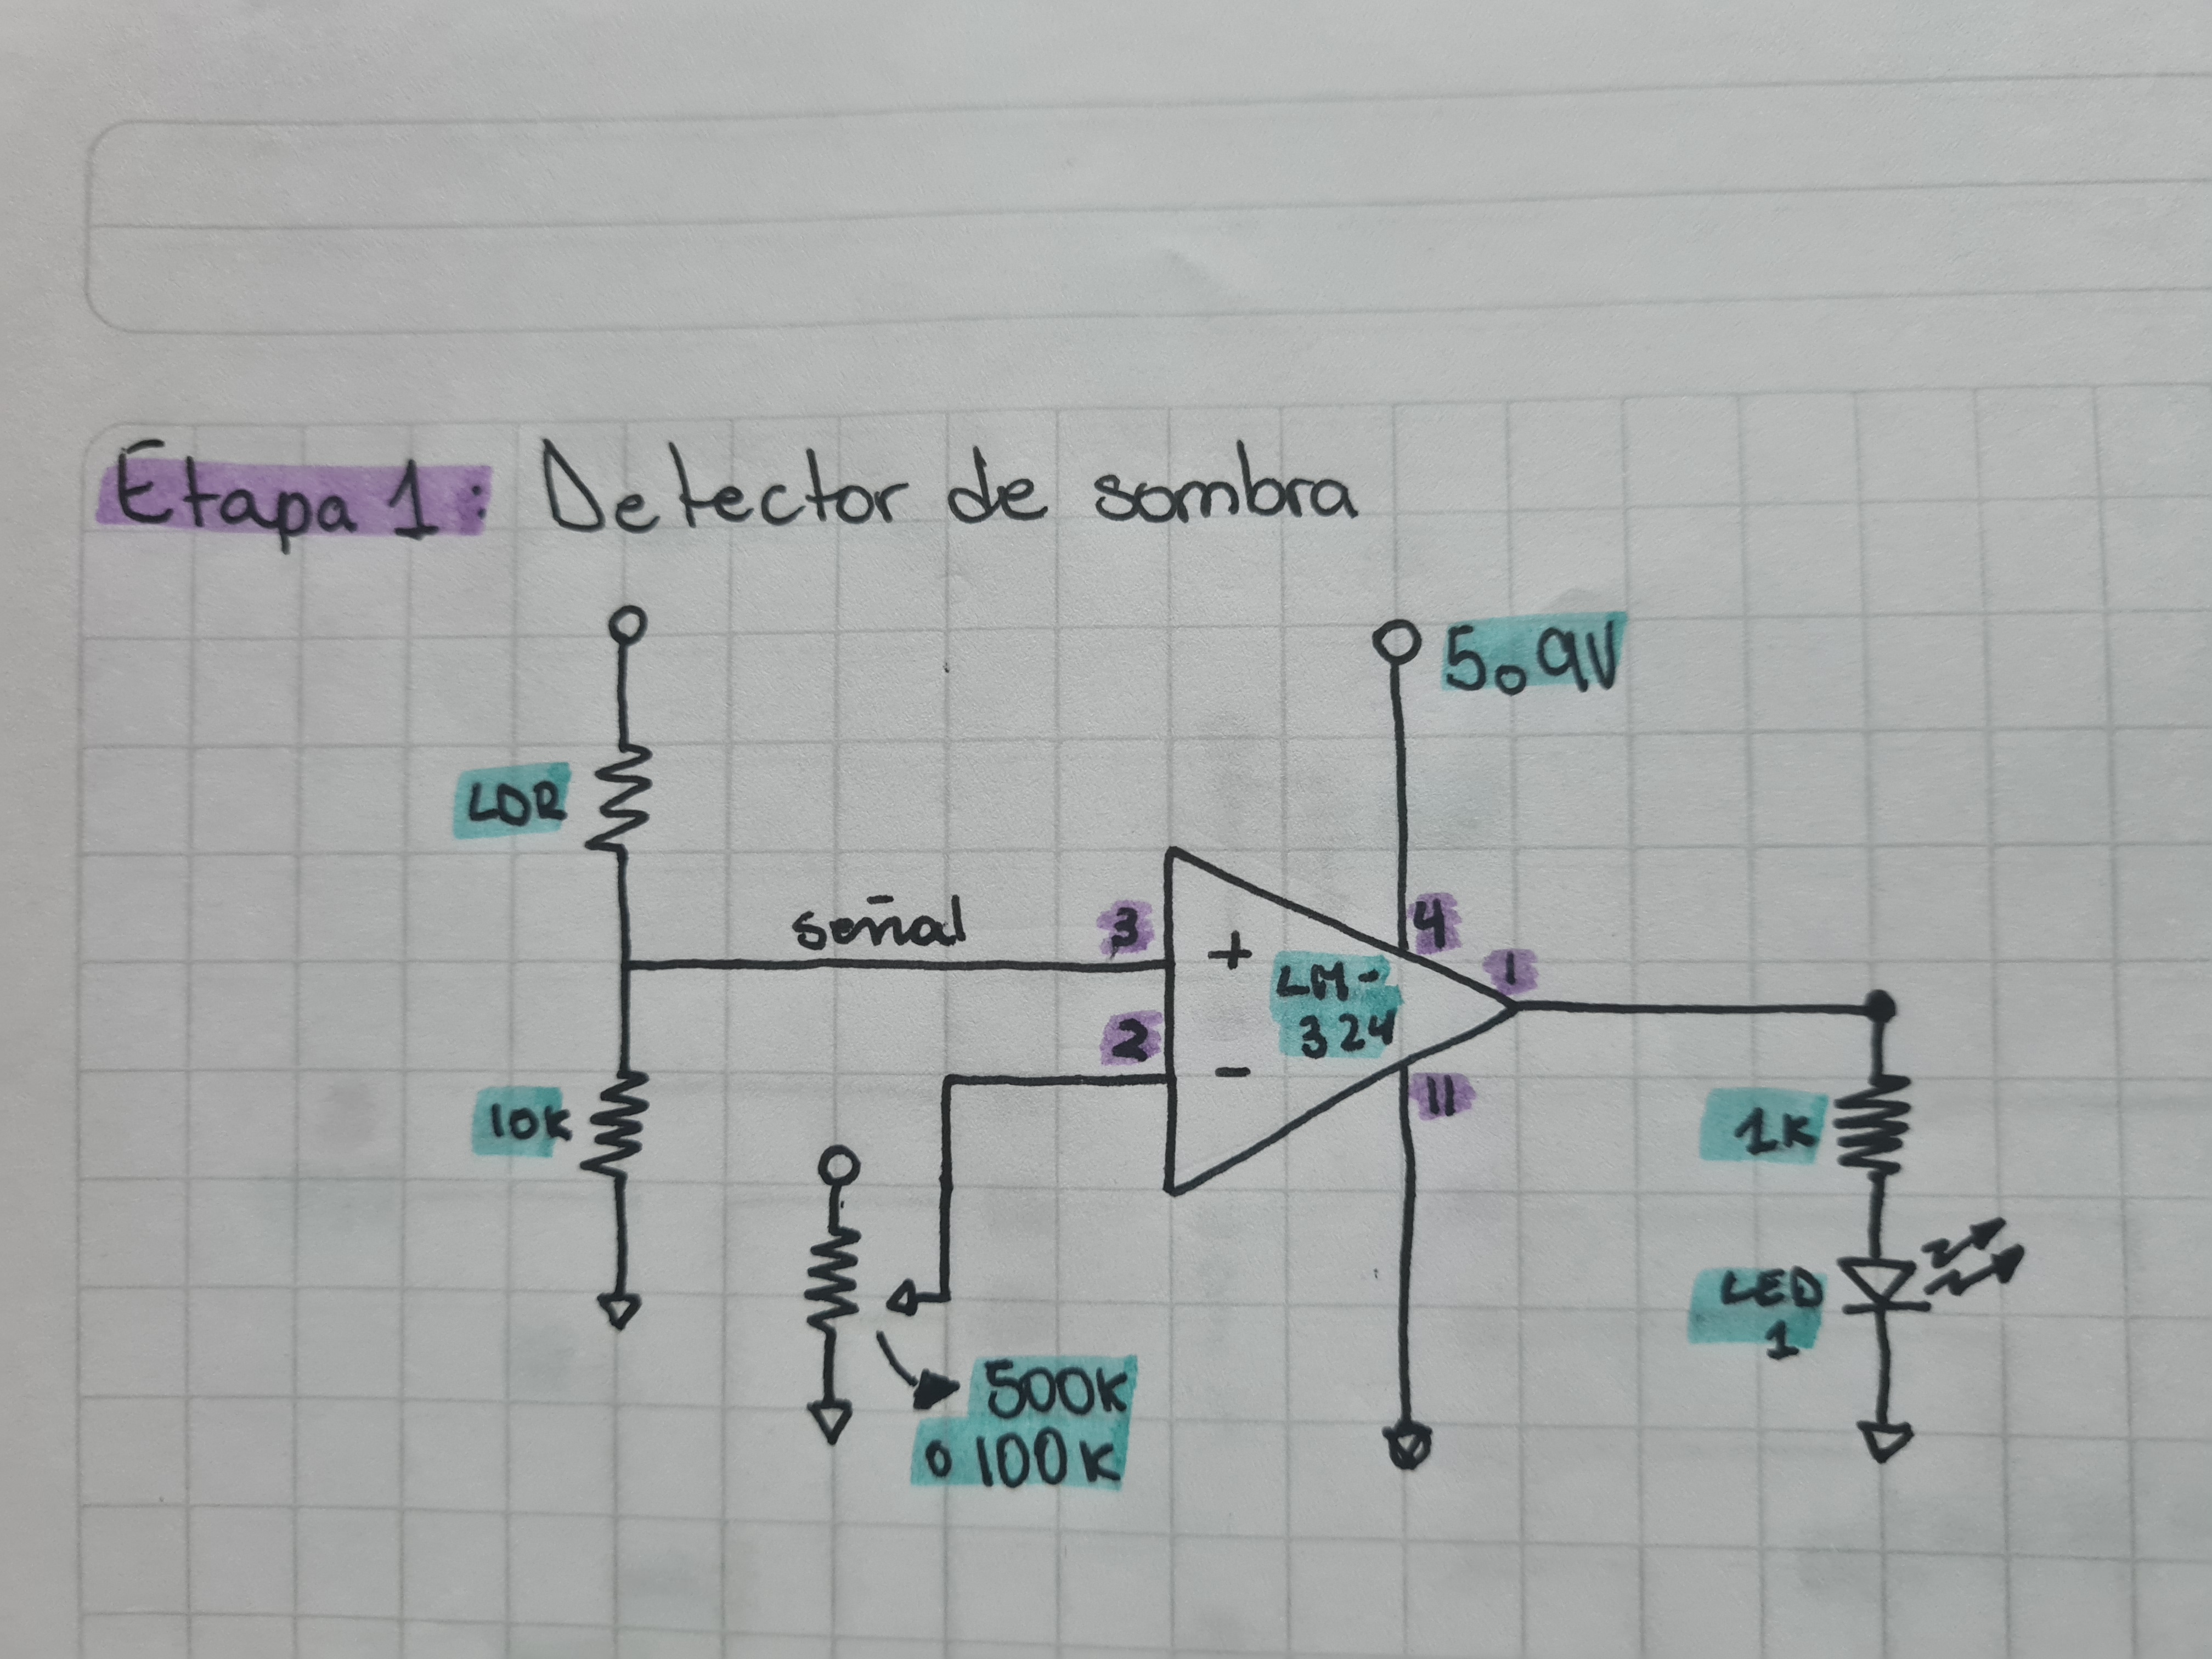 Etapa 1: Detector de sombra
5o9V
LDR
señal
3
4
+
LM-
324
1
2
-
11
10K
1K
LED
1
500K
o 100K